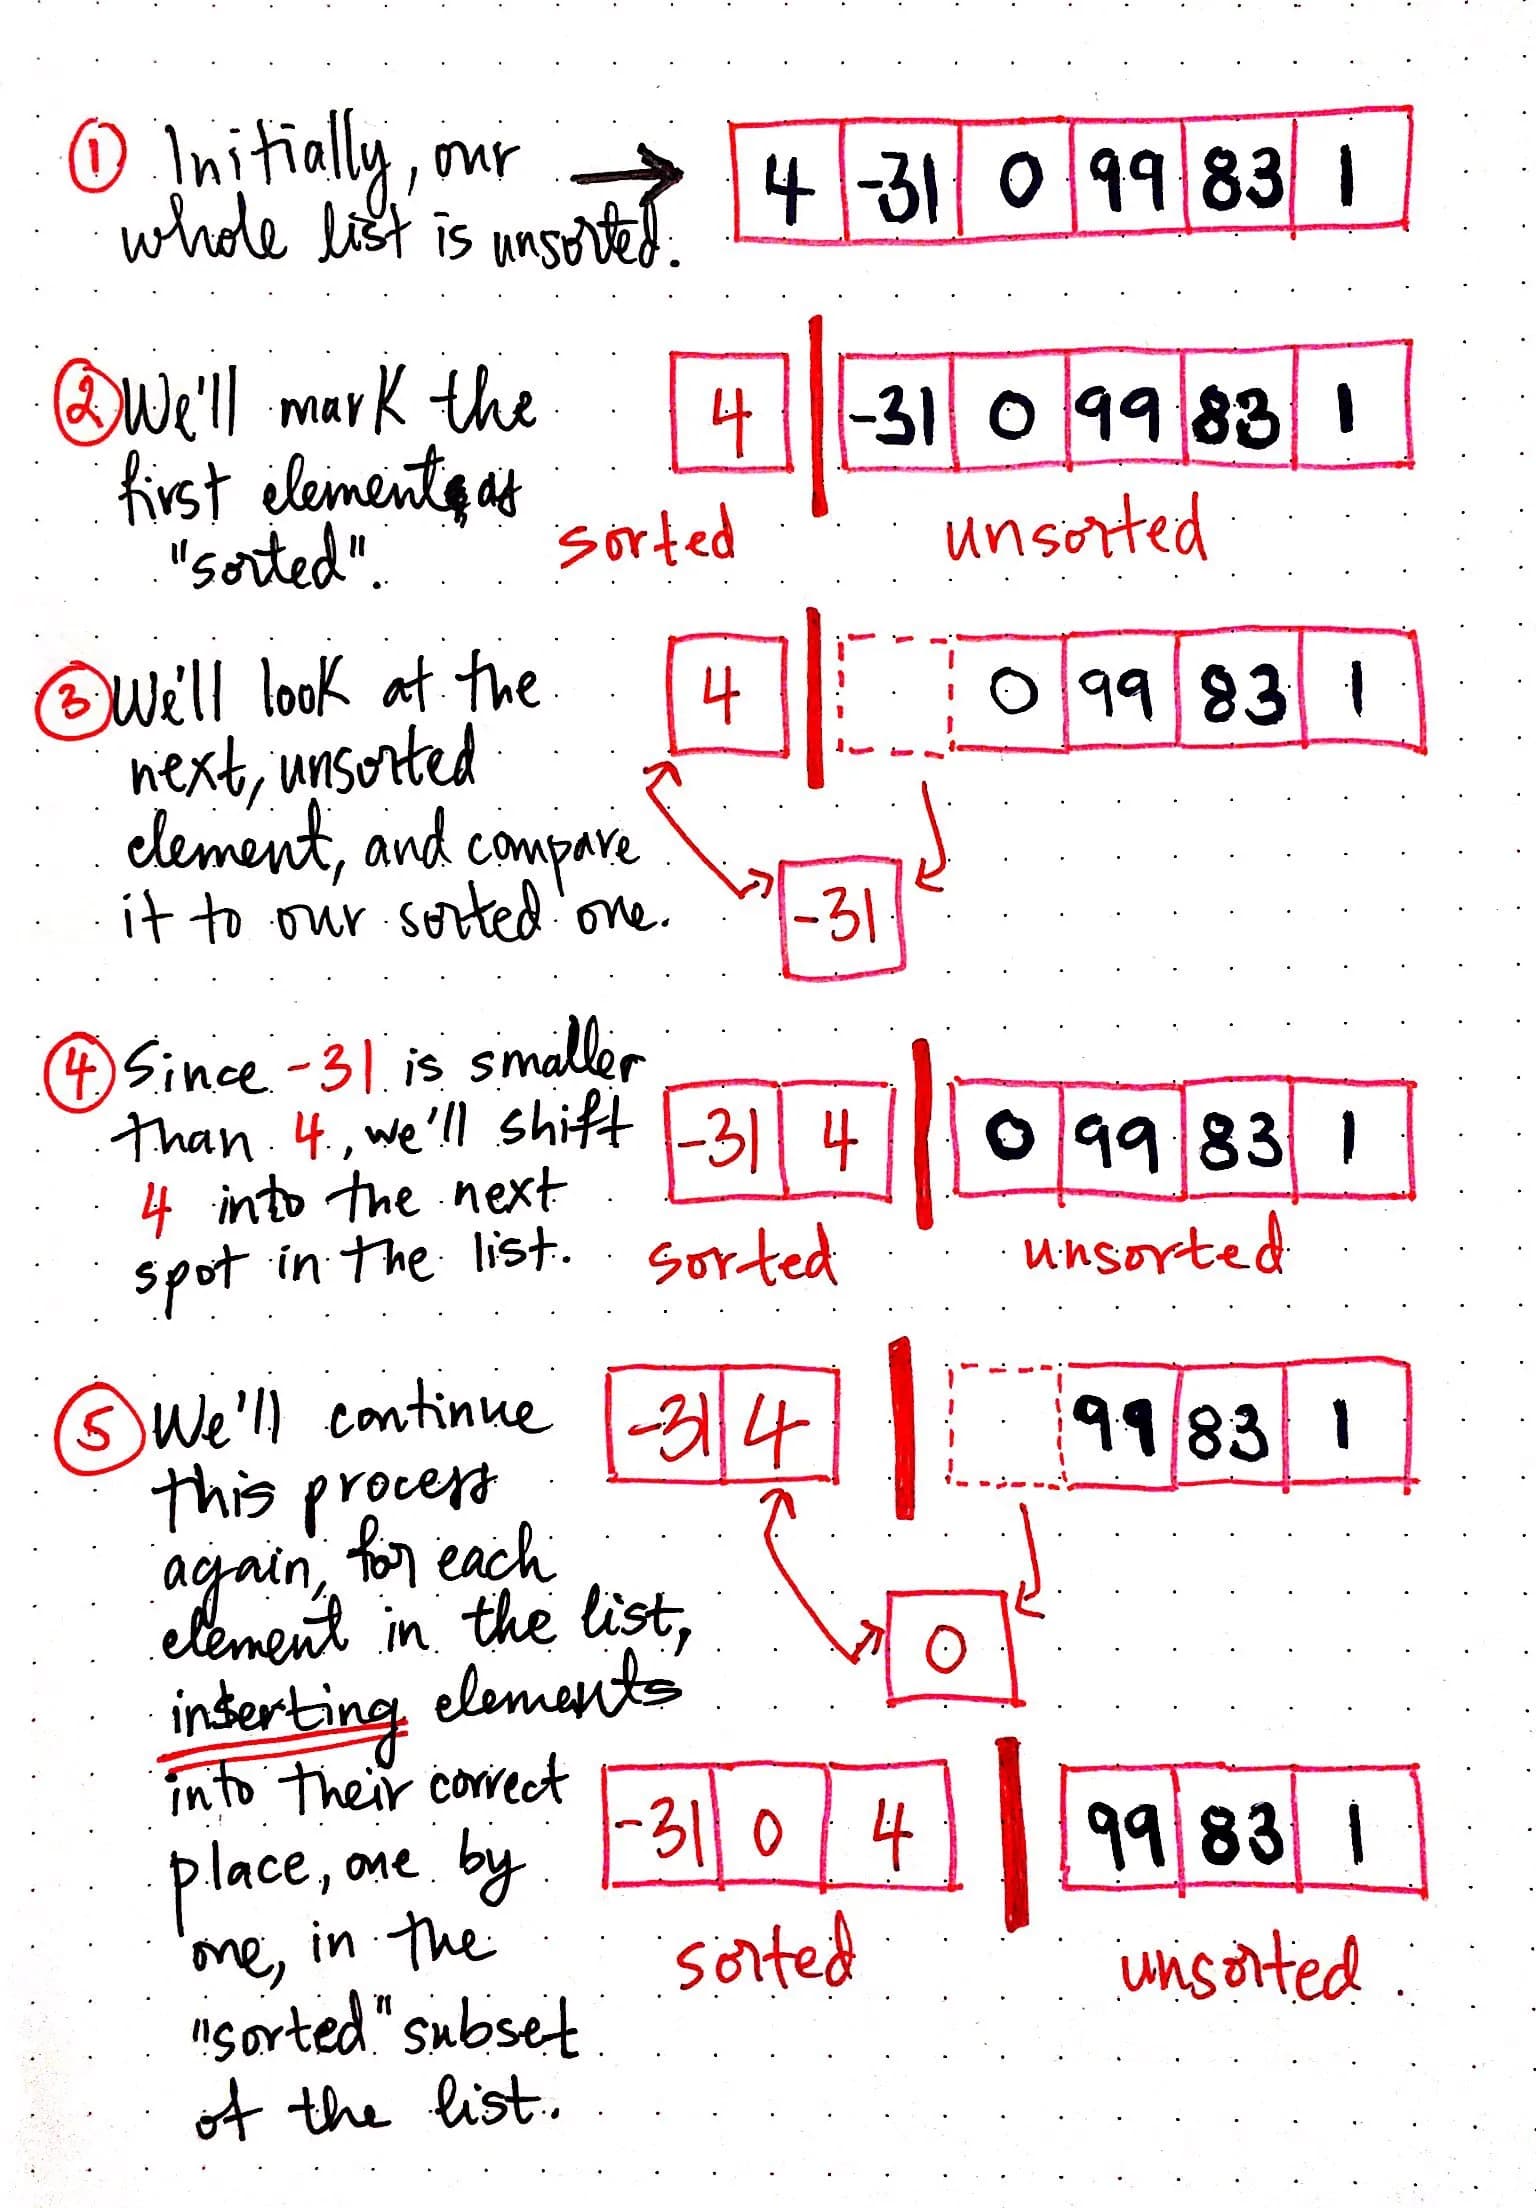 ① Initially, our →
whole list is unsorted.
4 -31 0 99 83 1
② We'll mark the
first element as
"sorted".
4 -31 0 99 83 1
sorted unsorted
③ We'll look at the
next, unsorted
element, and compare
it to our sorted one.
4 0 99 83 1
-31
④ Since -31 is smaller
than 4, we'll shift
4 into the next
spot in the list.
-31 4 0 99 83 1
sorted unsorted
⑤ We'll continue
this process
again, for each
element in the list,
inserting elements
into their correct
place, one by
one, in the
"sorted" subset
of the list.
-31 4 99 83 1
0
-31 0 4 99 83 1
sorted unsorted